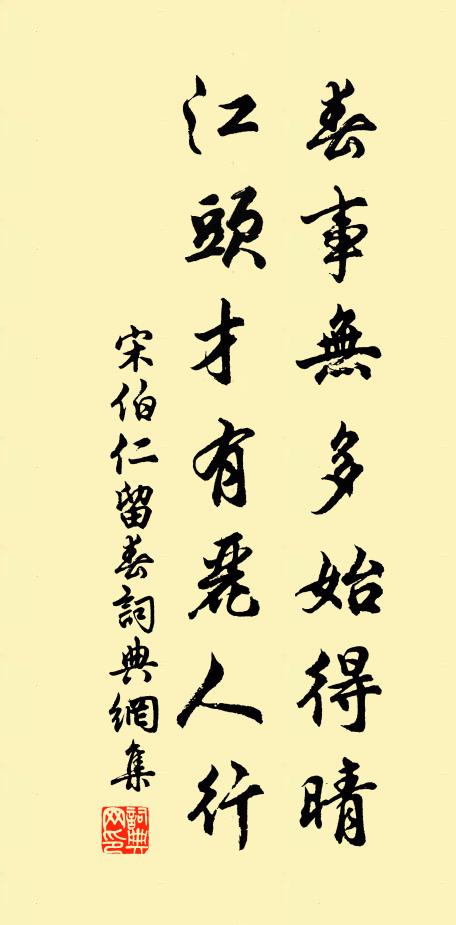 春事無多始得晴
江頭才有麗人行
宋伯仁留春詞典網集
詞典網印